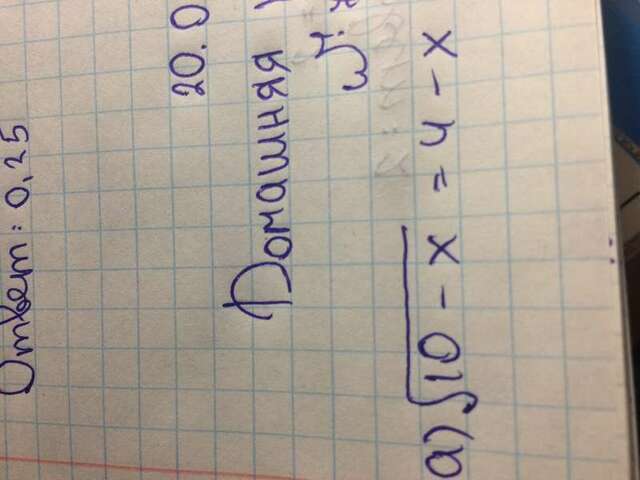 Ответ: 0,25
20.0
Домашняя
а) √10 - x = 4 - x